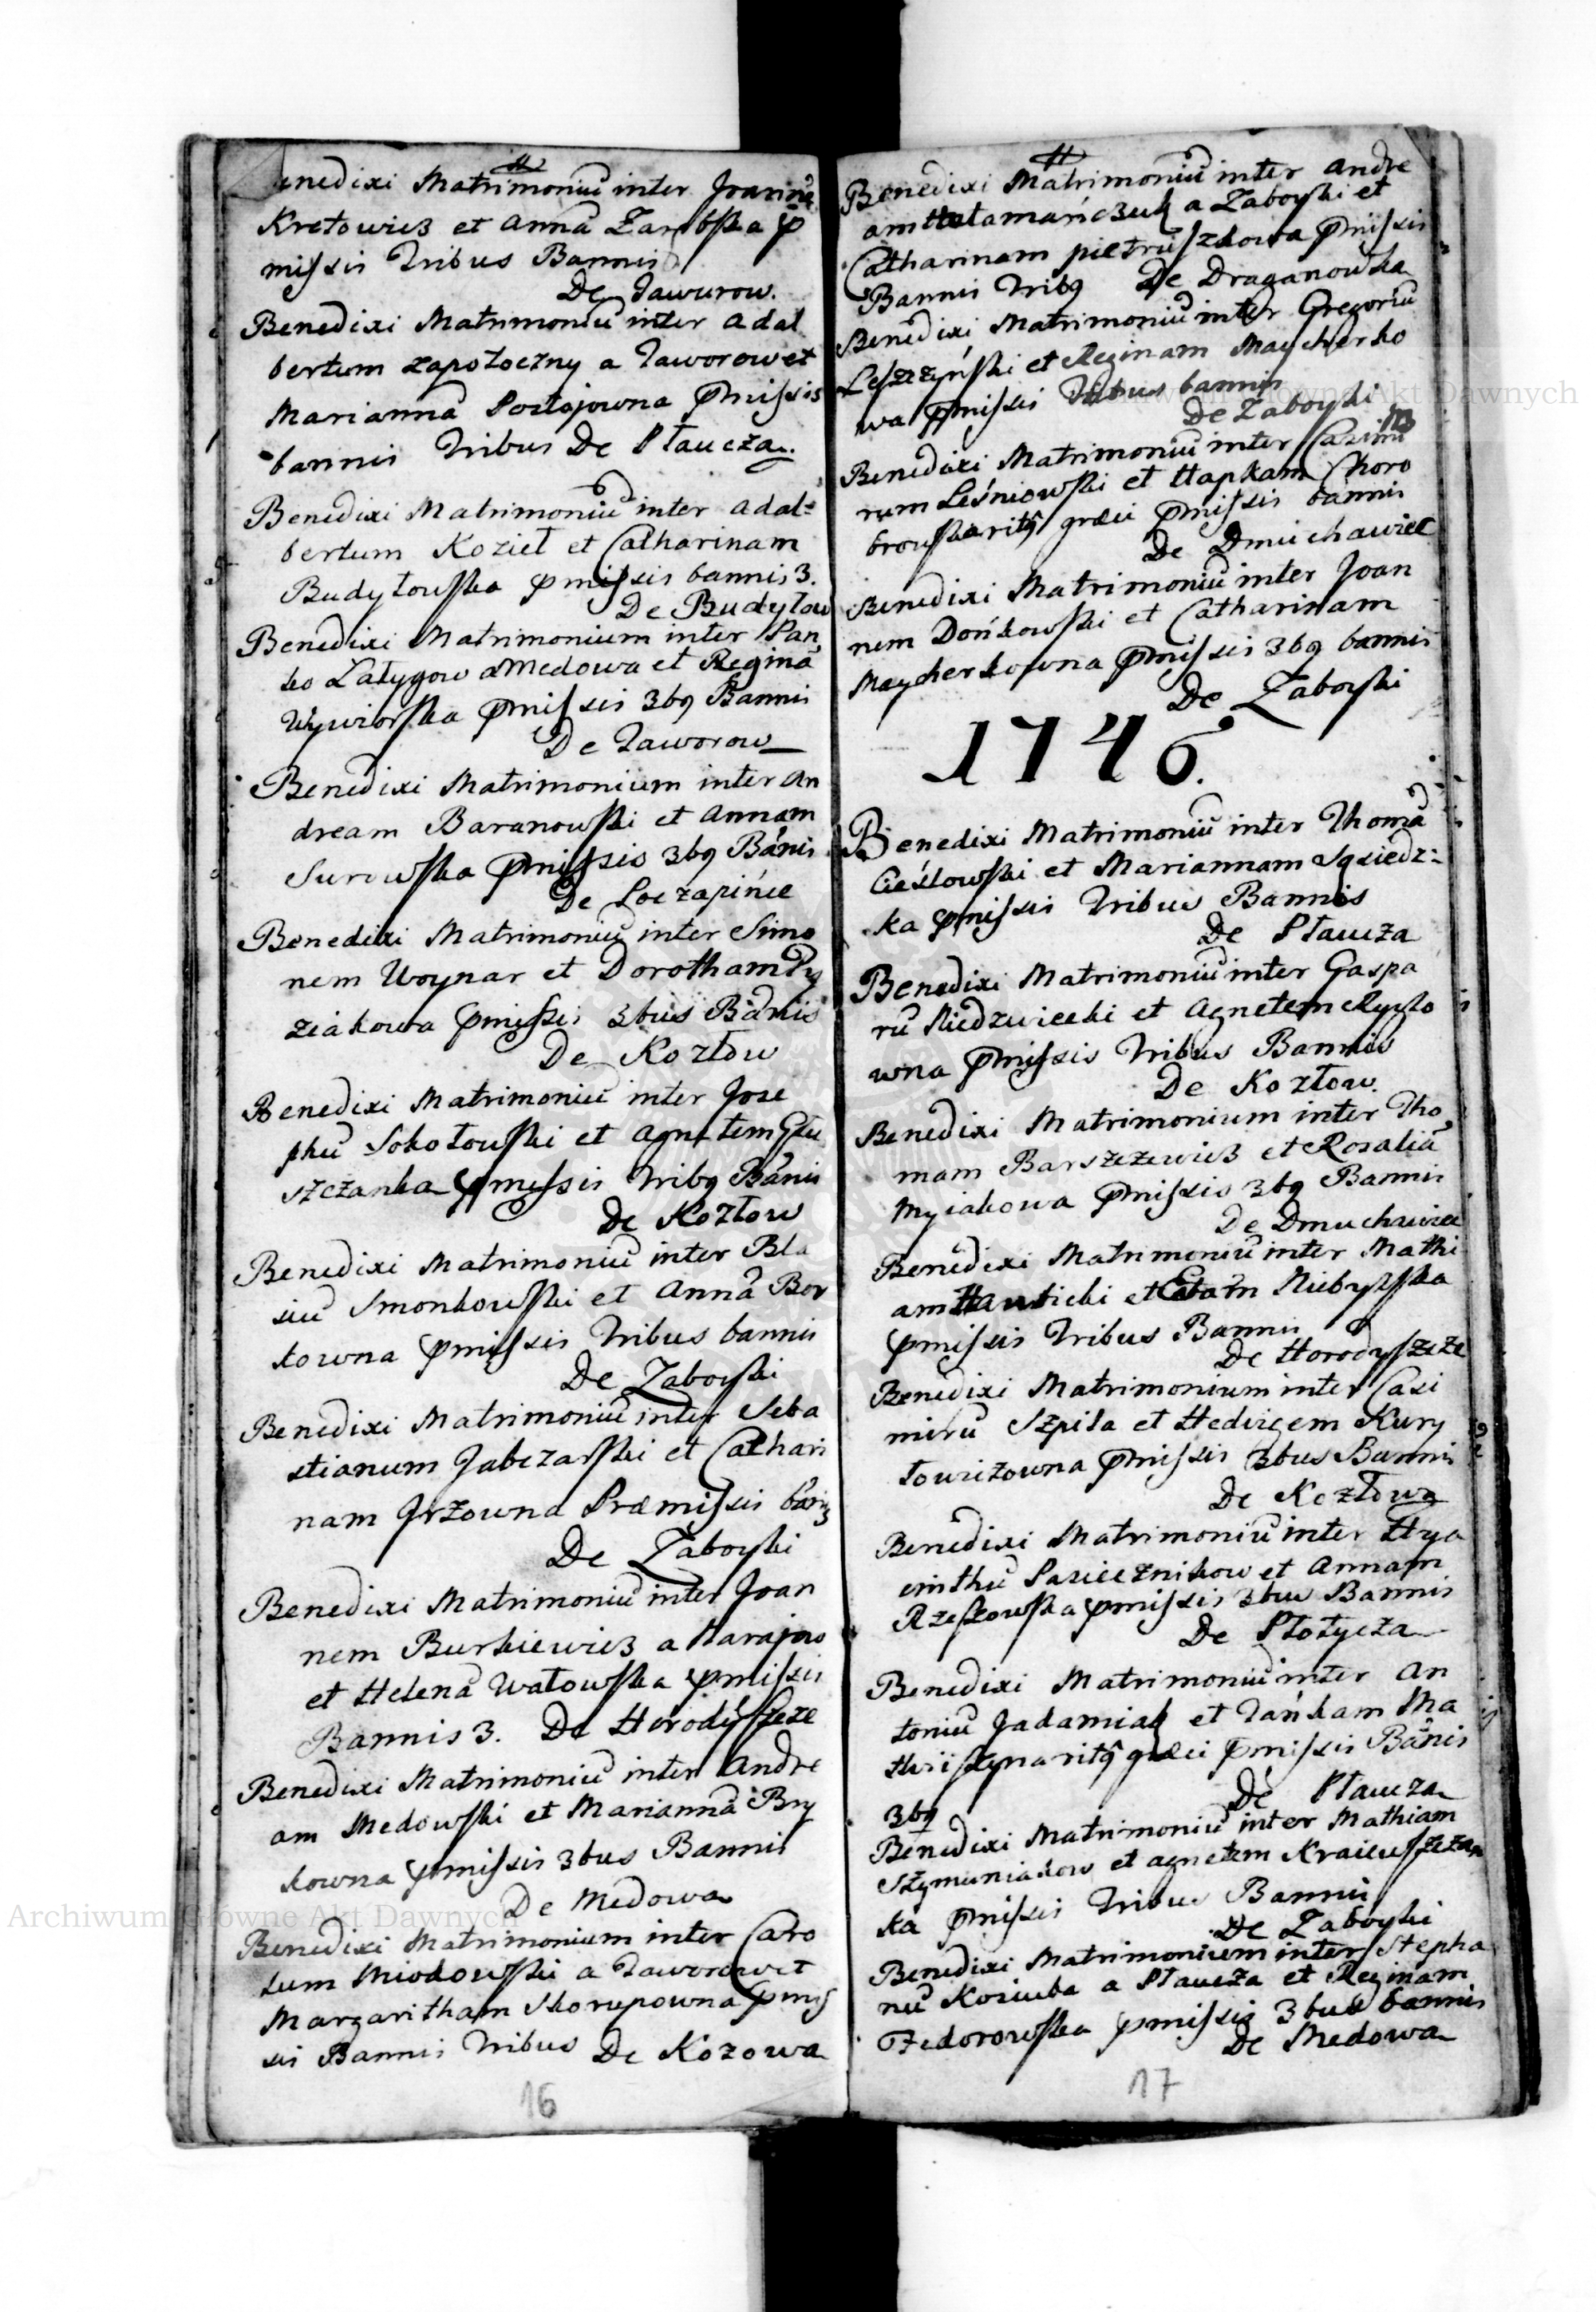 Benedixi Matrimoniũ inter Joannẽ
Kretowicz et Annã Zarębska p̃
missis Tribus Bannis
De Jaworow.
Benedixi Matrimoniũ inter Adal
bertum Zapotoczny a Jaworow et
Mariannã Postojowna p̃missis
bannis Tribus De Płaucza.
Benedixi Matrimoniũ inter Adal=
bertum Kozieł et Catharinam
Budyłowska p̃missis bannis 3.
De Budyłow
Benedixi Matrimonium inter Pan
ko Łatygow a Medowa et Reginã
Wywiorska p̃missis 3bq Bannis
De Jaworow
Benedixi Matrimonium inter An
dream Baranowski et Annam
Surowska p̃missis 3bq Bãnis
De Łoczapińce
Benedixi Matrimoniũ inter Simo
nem Woynar et Dorotham Py
ziakowa p̃missis 3bus Bãnis
De Kozłow
Benedixi Matrimoniũ inter Jose
phũ Sokołowski et Agnetem Głu
szczanka p̃missis Tribq Bãnis
De Kozłow
Benedixi Matrimoniũ inter Bla
siũ Smonkowski et Annã Bor
kowna p̃missis Tribus bannis
De Zaboyki
Benedixi Matrimoniũ inter Seba
stianum Jabczarski et Cathari
nam Jrzowna Præmissis bãnis
De Zaboyki
Benedixi Matrimoniũ inter Joan
nem Burkiewicz a Narajow
et Helenã Watowska p̃missis
Bannis 3. De Horodyszcze
Benedixi Matrimoniũ inter Andre
am Medowski et Mariannã Bry
kowna p̃missis 3bus Bannis
De Medowa
Benedixi Matrimonium inter Caro
lum Miodowski a Jaworow et
Margaritham Skorupowna p̃mis
sis Bannis Tribus De Kozowa
16
Benedixi Matrimoniũ inter Andre
am Hałamańczuk a Zaboyki et
Catharinam pietruszkowa p̃missis
Bannis Tribq De Draganowka
Benedixi Matrimoniũ inter Gregoriũ
Leszczyński et Reginam Maycherko
wa p̃missis Tribus bannis
De Zaboyki
Benedixi Matrimoniũ inter Casimi
rum Leśniowski et Hapkam Choro
browska ritq græci p̃missis bannis
De Dmuchawiec
Benedixi Matrimoniũ inter Joan
nem Dońkowski et Catharinam
Maycherkowna p̃missis 3bq bannis
De Zaboyki
1746.
Benedixi Matrimoniũ inter Thomã
Cieślowski et Mariannam Sąsiedz=
ka p̃missis Tribus Bannis
De Płaucza
Benedixi Matrimoniũ inter Gaspa
rũ Niedzwiecki et Agnetem Ryyko
wna p̃missis Tribus Bannis
De Kozłow.
Benedixi Matrimonium inter Tho
mam Barszczewicz et Rosaliã
Myiakowa p̃missis 3bq Bannis
De Dmuchawiec
Benedixi Matrimoniũ inter Mathi
am Hawticki et Evam Niebyłska
p̃missis Tribus Bannis
De Horodyszcze
Benedixi Matrimonium inter Casi
mirũ Szpila et Hedvigem Kury
łowiżowna p̃missis 3bus Bannis
De Kozłow
Benedixi Matrimoniũ inter Hya
cinthũ Pasiecznikow et Annam
Rzeszowska p̃missis 3bus Bannis
De Płotycza
Benedixi Matrimoniũ inter An
toniũ Jadamiak et Jańkam Ma
thiiszyna ritq græci p̃missis Bãnis
3bq De Płaucza
Benedixi Matrimoniũ inter Mathiam
Szymuniakow et agnetem Kraicuszczan
ka p̃missis Tribus Bannis
De Zaboyki
Benedixi Matrimonium inter Stepha
nũ Kosiuba a Płaucza et Reginam
Fzedorowska p̃missis 3bus bannis
De Medowa
17
Archiwum Główne Akt Dawnych